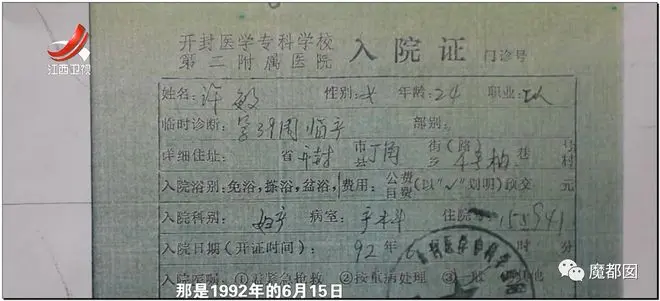 江西卫视
开封医学专科学校
第二附属医院 入院证 门诊号
姓名：许敏 性别：女 年龄：24 职业：工人
临时诊断：孕39周 临产 部别：
详细住址： 省 开封 市县 街(路)乡 巷 号村
入院浴别：免浴，擦浴，盆浴，费用：公费自费(以"√"划明)预交 元
入院科别：妇产 病室： 住院号
入院日期(开证时间)：92年 时 分
入院医嘱：①紧急抢救 ②按重病处理 ③一般
那是1992年的6月15日
魔都囡